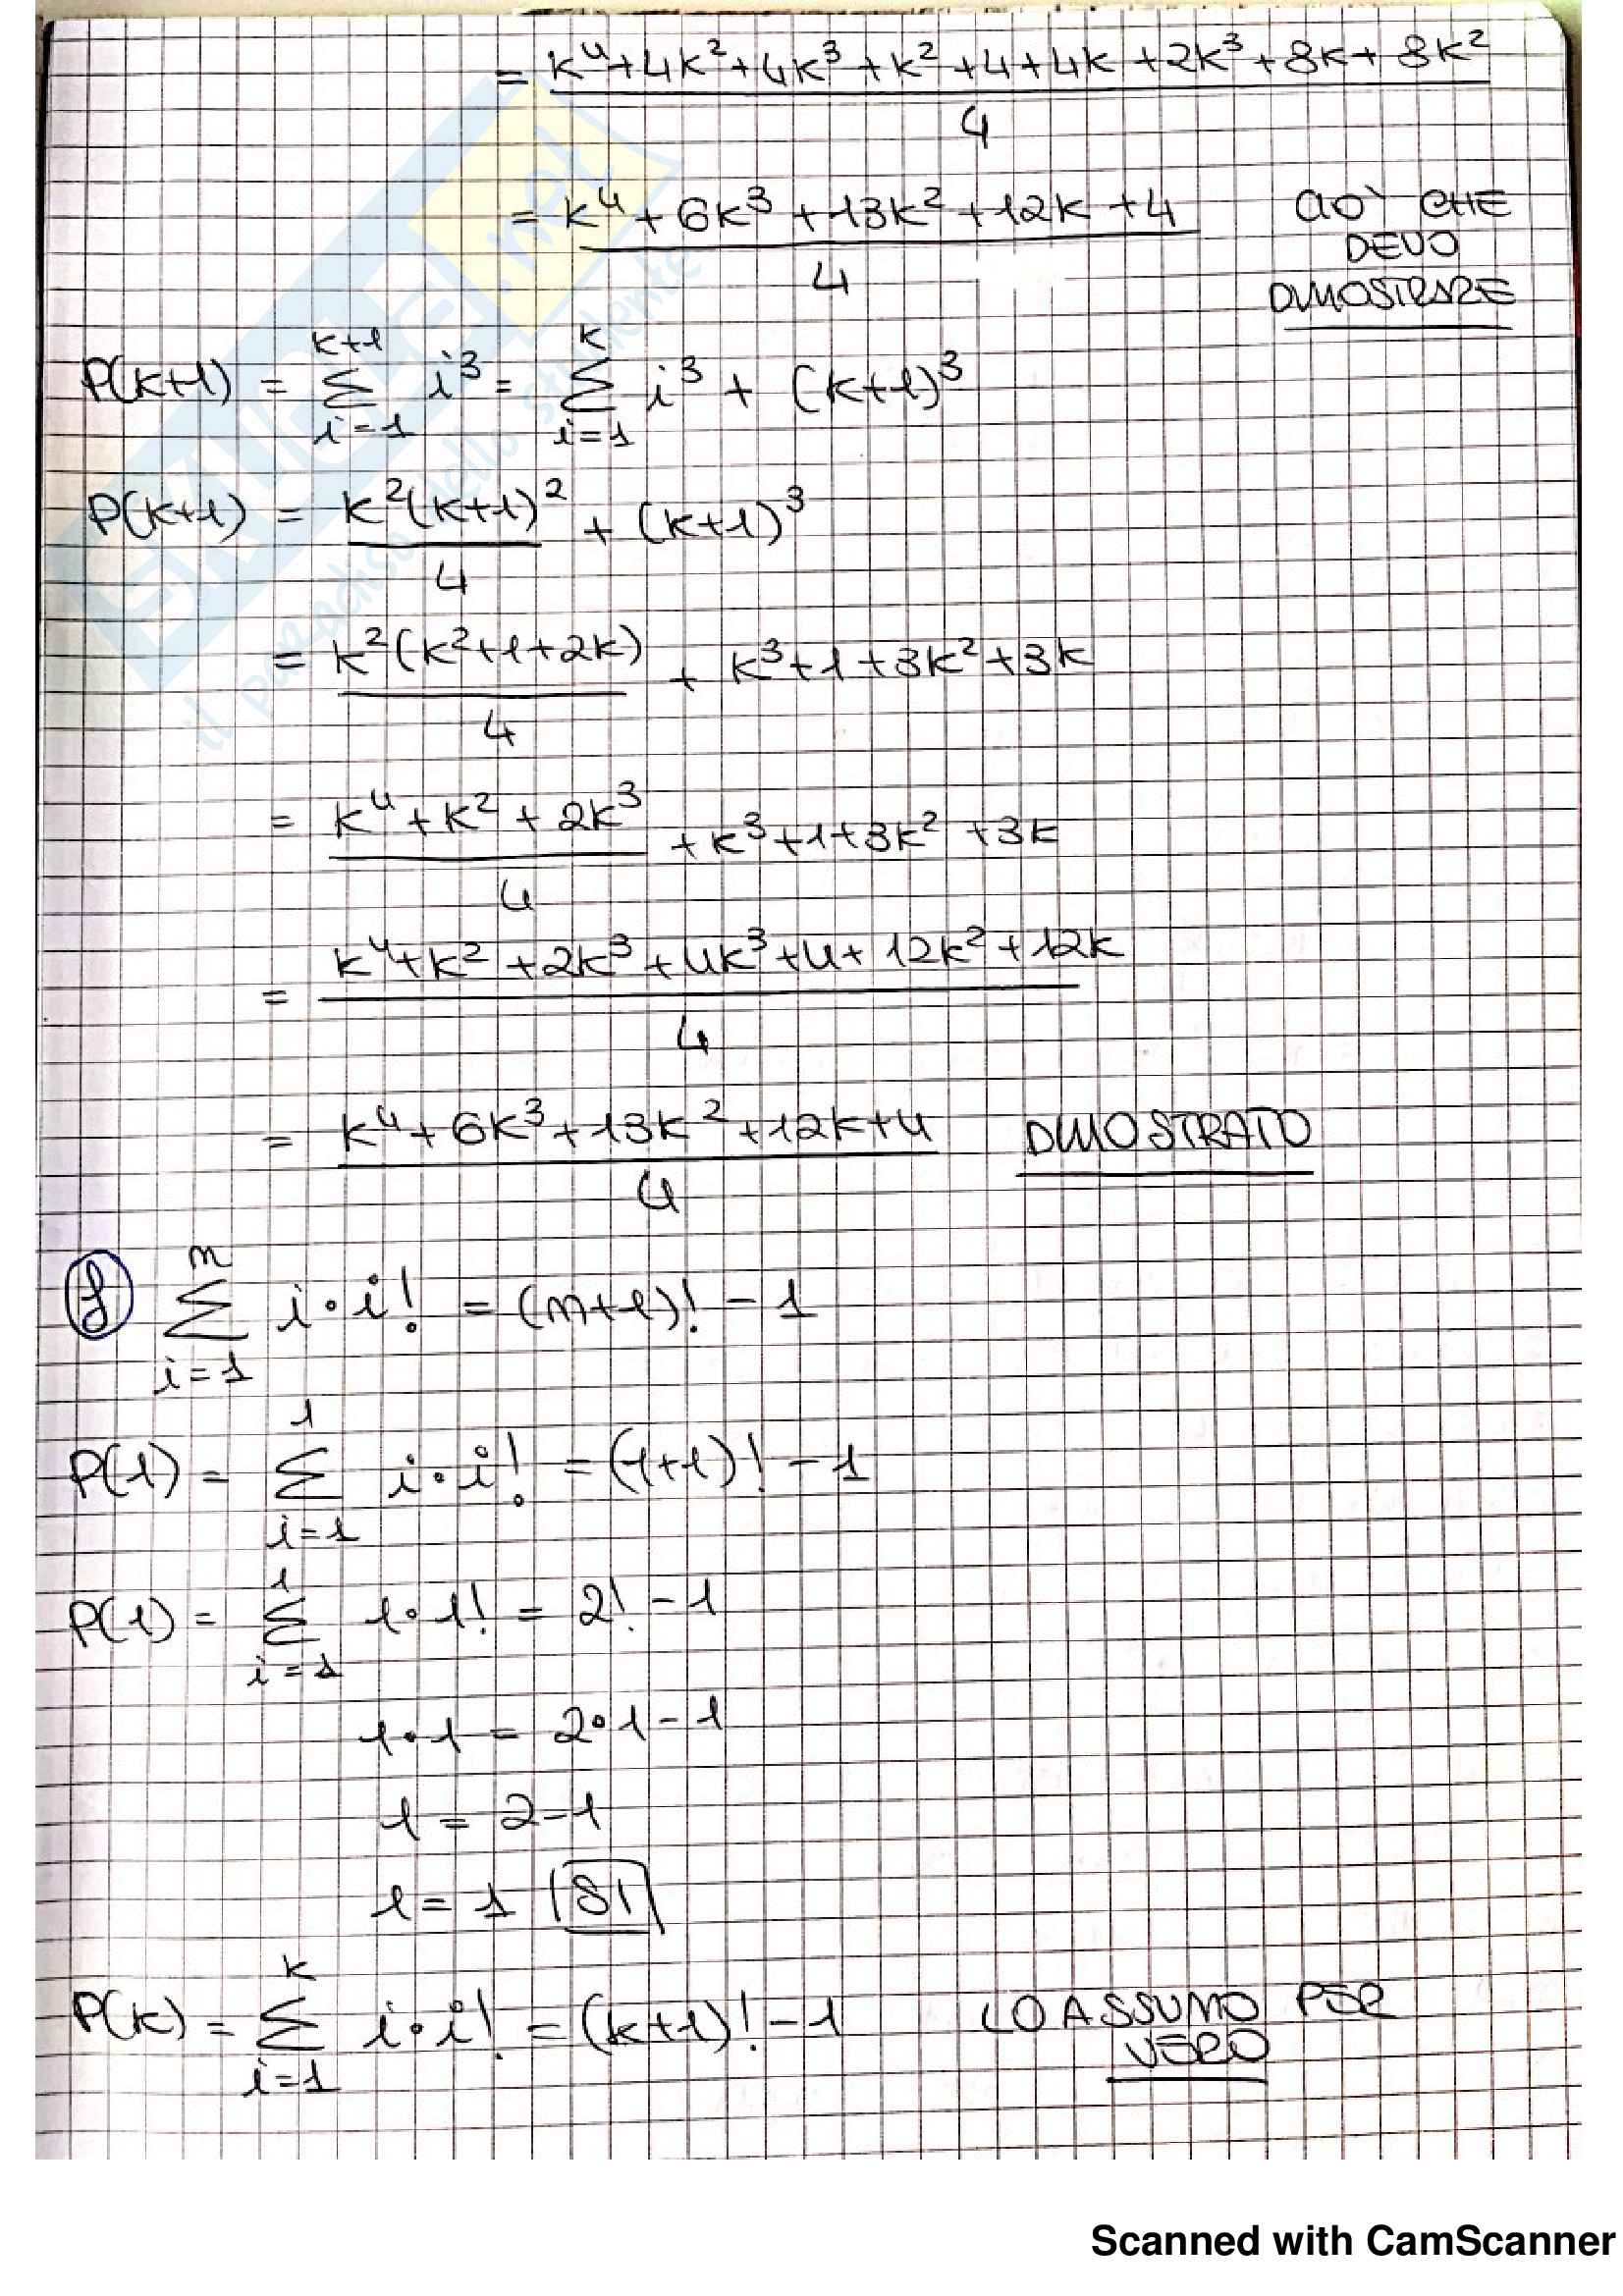 = k⁴+4k²+4k³+k²+4+4k+2k³+8k+8k² / 4
= k⁴+6k³+13k²+12k+4 / 4 CIO' CHE
DEVO
DIMOSTRARE
P(k+1) = Σ_{i=1}^{k+1} i³ = Σ_{i=1}^{k} i³ + (k+1)³
P(k+1) = k²(k+1)² / 4 + (k+1)³
= k²(k²+1+2k) / 4 + k³+1+3k²+3k
= k⁴+k²+2k³ / 4 + k³+1+3k²+3k
= k⁴+k²+2k³+4k³+4+12k²+12k / 4
= k⁴+6k³+13k²+12k+4 / 4 DIMOSTRATO
f Σ_{i=1}^{n} i·i! = (n+1)! - 1
P(1) = Σ_{i=1}^{1} i·i! = (1+1)! - 1
P(1) = Σ_{i=1}^{1} 1·1! = 2! - 1
1·1 = 2·1-1
1 = 2-1
1 = 1 SI
P(k) = Σ_{i=1}^{k} i·i! = (k+1)! - 1 LO ASSUMO PER
VERO
SKUOLA.net
il paradiso dello studente
Scanned with CamScanner